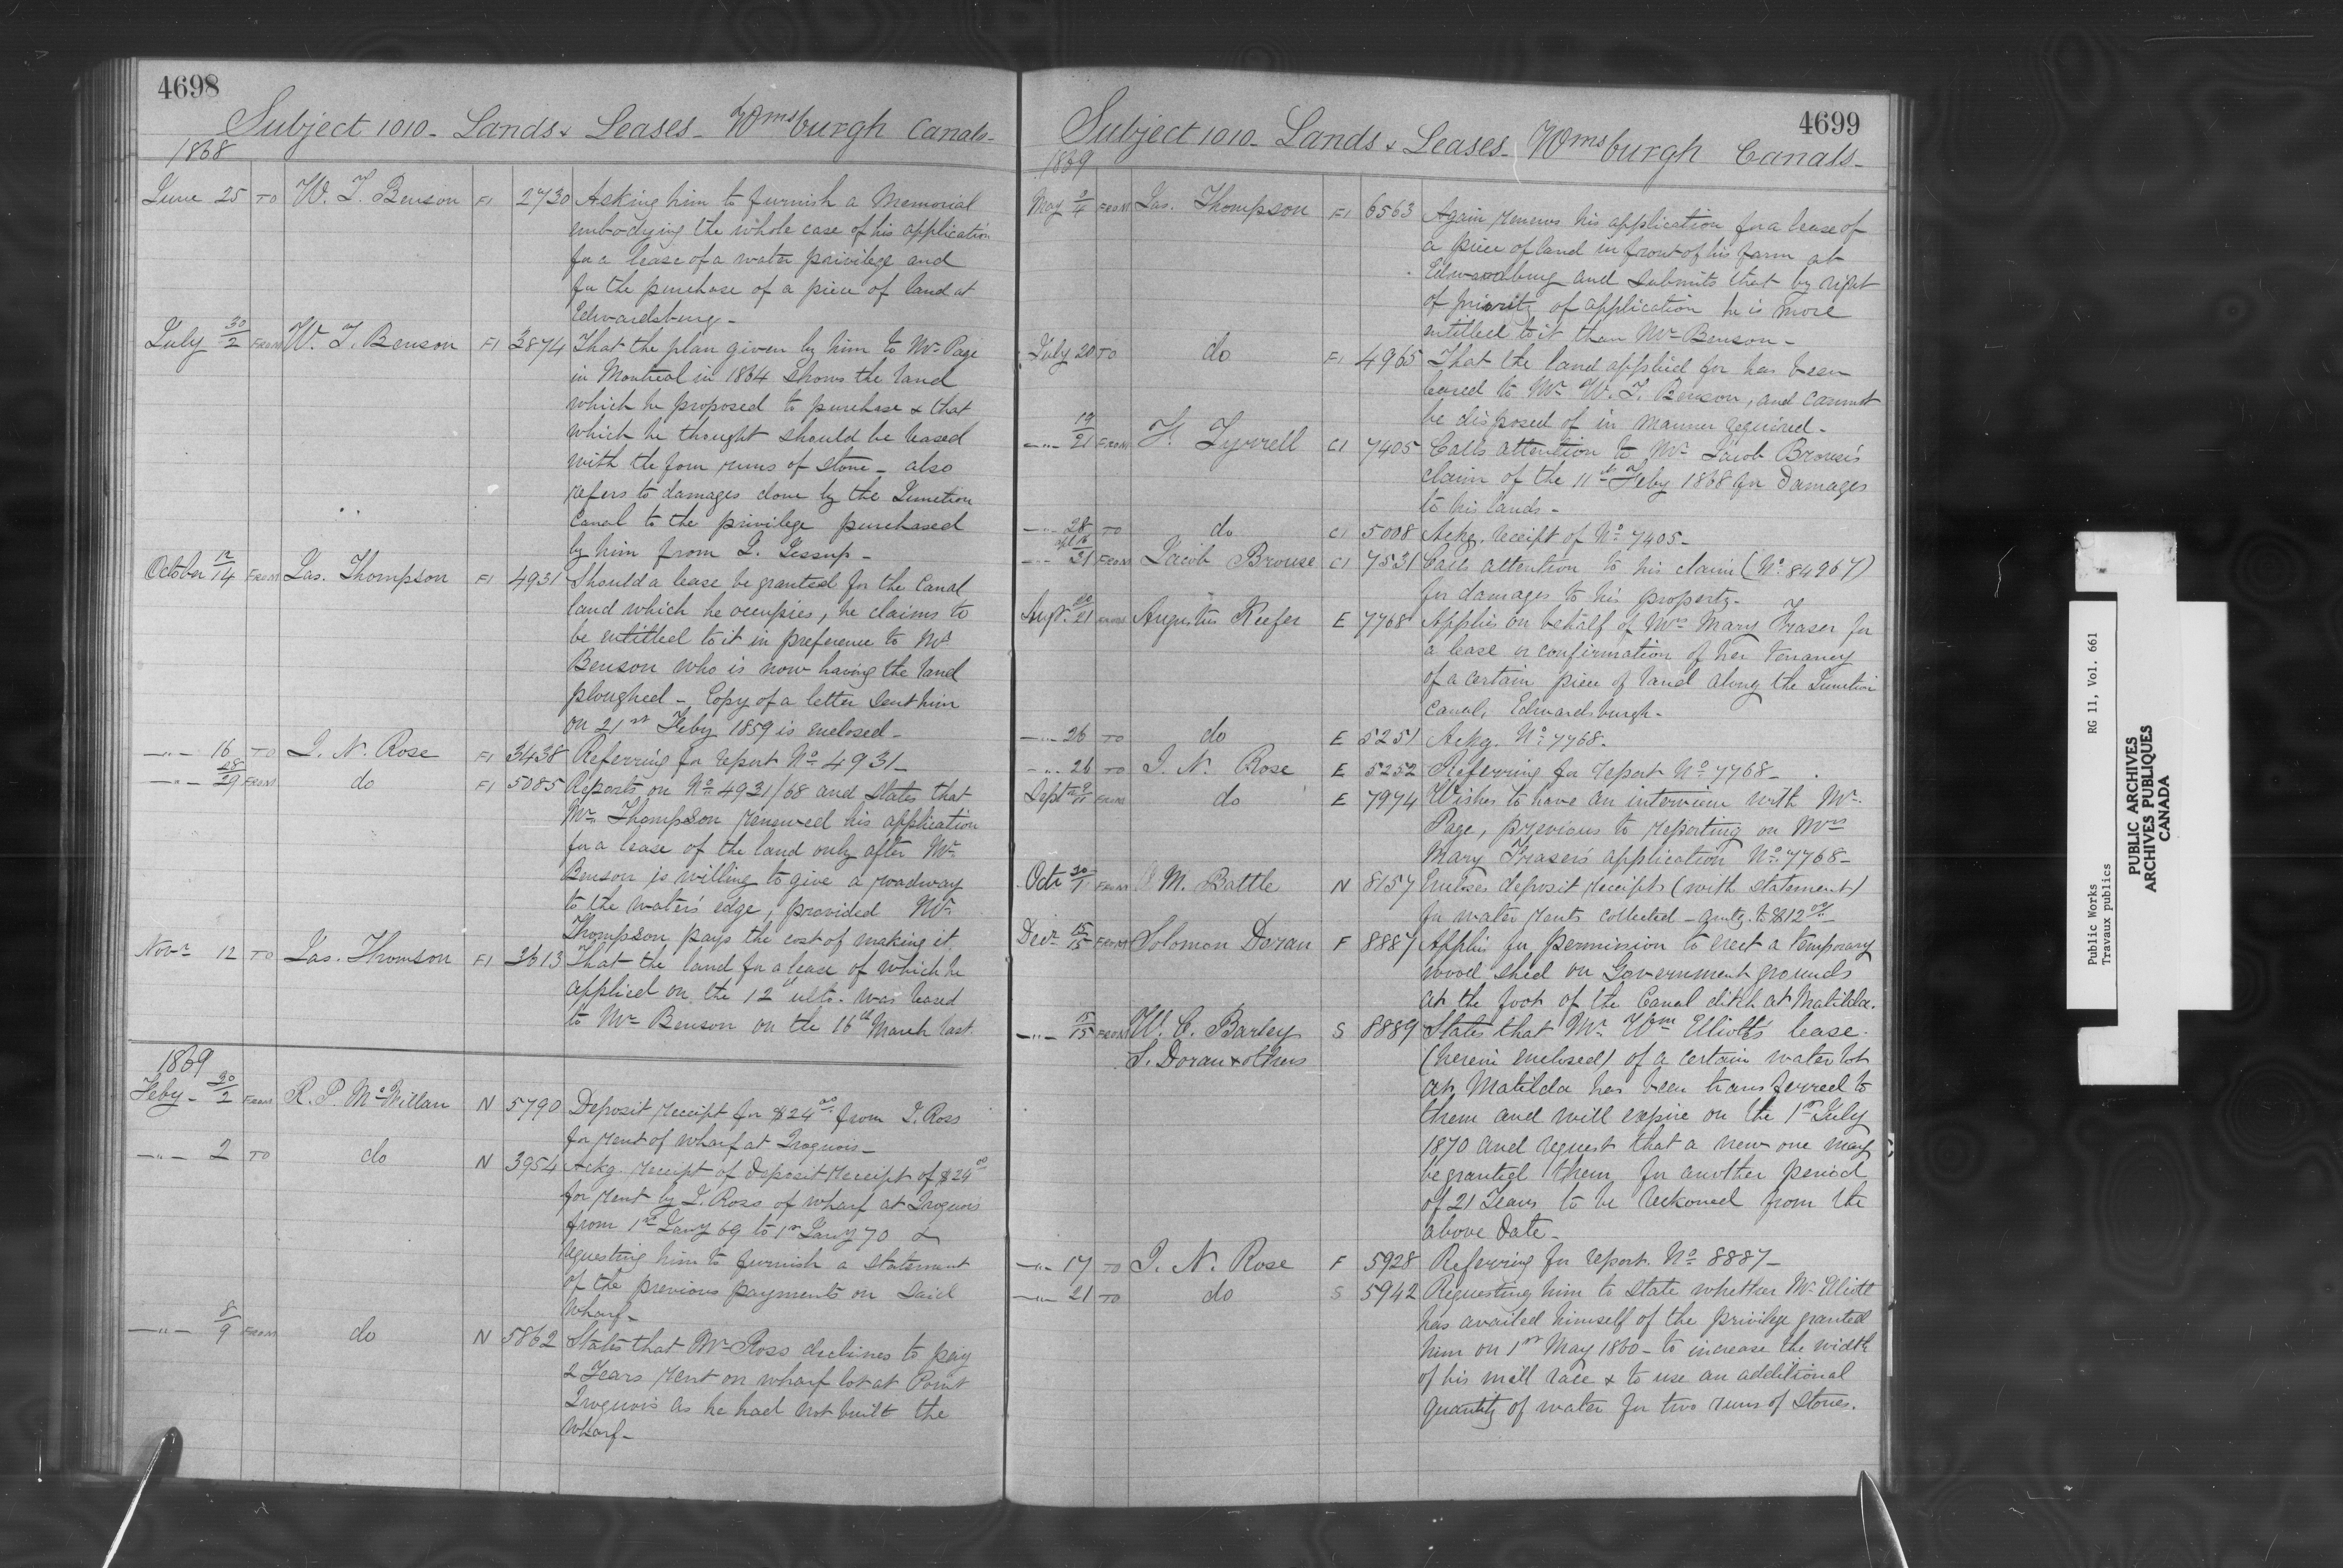 4698
Subject 1010 - Lands & Leases - Wmsburgh Canals -
1868
June 25 TO W. T. Benson F1 2730 Asking him to furnish a Memorial
embodying the whole case of his application
for a lease of a water privilege and
for the purchase of a piece of land at
Edwardsburg -
July 30/2 FROM W. T. Benson F1 3874 That the plan given by him to Mr. Page
in Montreal in 1864 shows the land
which he proposed to purchase & that
which he thought should be leased
with the four runs of stone - also
refers to damages done by the Junction
Canal to the privilege purchased
by him from J. Jessup -
October 12/14 FROM Jas. Thompson F1 4931 Should a lease be granted for the Canal
land which he occupies, he claims to
be entitled to it in preference to Mr.
Benson who is now having the land
ploughed - Copy of a letter sent him
on 21st Feby 1859 is enclosed -
—"— 16 TO J. N. Rose F1 3438 Referring for report No. 4931 -
—"— 28/29 FROM do F1 5085 Reports on No. 4931/68 and states that
Mr. Thompson renewed his application
for a lease of the land only after Mr.
Benson is willing to give a roadway
to the water's edge, provided Mr.
Thompson pays the cost of making it.
Novr 12 TO Jas. Thomson F1 3613 That the land for a lease of which he
applied on the 12th ulto. was leased
to Mr Benson on the 16th March last.
1869
Feby - 30/2 FROM R. P. McMillan N 5790 Deposit receipt for $24.00 from J. Ross
for rent of wharf at Iroquois -
—"— 2 TO do N 3954 Ackg. receipt of Deposit receipt of $24.00
for rent by J. Ross of wharf at Iroquois
from 1st Jany 69 to 1st Jany 70 &
requesting him to furnish a statement
of the previous payments on said
wharf -
—"— 8/9 FROM do N 5862 States that Mr Ross declines to pay
2 Years rent on wharf lot at Point
Iroquois as he had not built the
wharf -
4699
Subject 1010 - Lands & Leases - Wmsburgh Canals -
1869
May 3/4 FROM Jas. Thompson F1 6563 Again renews his application for a lease of
a piece of land in front of his farm at
Edwardburg and submits that by right
of priority of application he is more
entitled to it than Mr Benson -
July 20 TO do F1 4965 That the land applied for has been
leased to Mr W. T. Benson, and cannot
be disposed of in manner required -
—"— 19/21 FROM H. Tyrrell C1 7405 Calls attention to Mr Jacob Brouse's
claim of the 11th Feby 1868 for Damages
to his lands -
—"— 28 TO do C1 5008 Ackg. receipt of No. 7405 -
—"— 31 FROM Jacob Brouse C1 7531 Calls attention to his claim (No. 84967)
for damages to his property -
Augt. 20/21 FROM Augustus Keefer E 7768 Applies on behalf of Mrs Mary Fraser for
a lease or confirmation of her tenancy
of a certain piece of land along the Junction
Canal, Edwardsburgh -
—"— 26 TO do E 5251 Ackg. No. 7768 -
—"— 26 TO J. N. Rose E 5252 Referring for report No. 7768 -
Septr 9/11 FROM do E 7974 Wishes to have an interview with Mr.
Page, previous to reporting on Mrs
Mary Fraser's application No. 7768 -
Octr 30/1 FROM M. Battle N 8157 Encloses deposit receipts (with statement)
for water rents collected - amtg. to
Decr 15/15 FROM Solomon Doran F 8887 Applies for permission to erect a temporary
wood shed on Government grounds
at the foot of the Canal ditch at Matilda.
—"— 15/15 FROM W. C. Barley S 8889 States that Mr. Wm Elliott's lease
S. Doran & others (herein enclosed) of a certain water lot
at Matilda has been transferred to
them and will expire on the 1st July
1870 and request that a new one may
be granted them for another period
of 21 Years to be reckoned from the
above date -
—"— 17 TO J. N. Rose F 5928 Referring for report No. 8887 -
—"— 21 TO do S 5942 Requesting him to state whether Mr Elliott
has availed himself of the privilege granted
him on 1st May 1860 - to increase the width
of his mill race & to use an additional
quantity of water for two runs of stones.
Public Works RG 11, Vol. 661
Travaux publics
PUBLIC ARCHIVES
ARCHIVES PUBLIQUES
CANADA